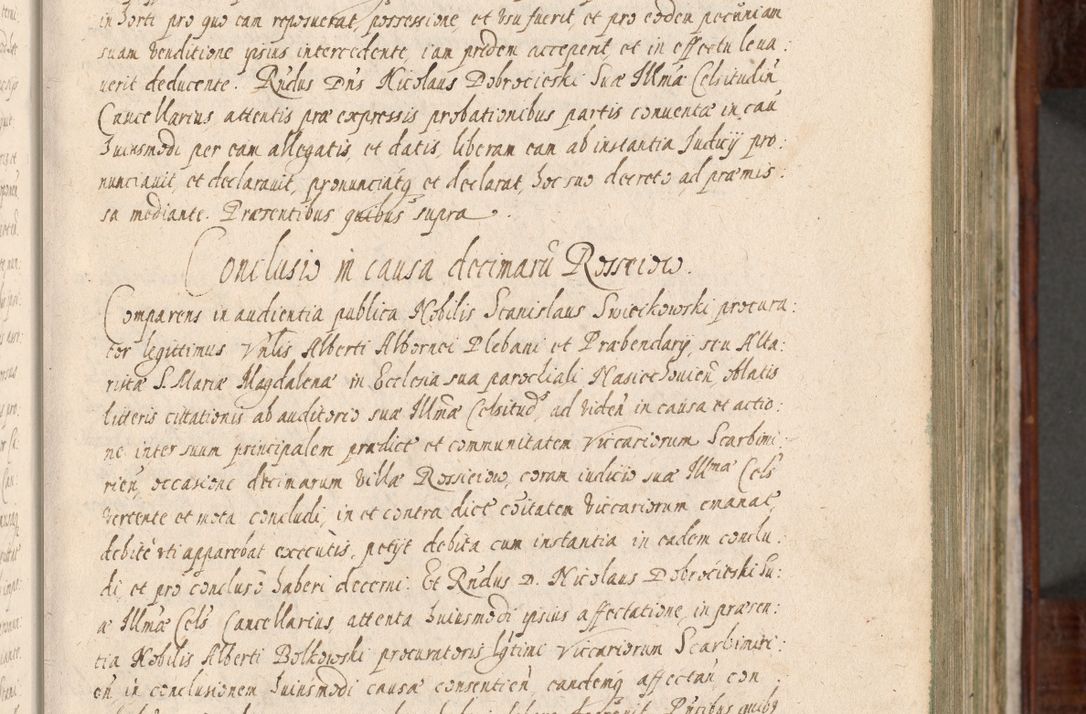 in sorti pro quo eam reposuerat, possessione, et usu fuerit, et pro eodem pecuniam
suam venditione ipsius intercedente, iam pridem acceperit, et in effectu leua:
uerit deducente. Rñdus Dñs Nicolaus Dobrocieski Suæ Illmæ Celsitudiñ
Cancellarius attentis præ expressis probationibus partis conuentæ in cau
huiusmodi per eam allegatis, et datis, liberam eam ab instantia Judicij pro:
nunciauit, et declarauit, pronunciatq et declarat, hoc suo decreto ad præmis:
sa mediante. Præsentibus quibus supra.
Conclusio in causa decimarũ Rosseiow.
Comparens in audientia publica Nobilis Stanislaus Swiecikowski procura:
tor legittimus Vnlis Alberti Albornei Plebani et Præbendarij, seu Alta:
ristæ S. Mariæ Magdalenæ in Ecclesia sua parochiali Nasiechouieñ oblatis
literis citationis ab auditorio suæ Illmæ Celsitudis, ad videñ in causa et actio:
ne inter suum principalem prædict et communitatem Viccariorum Scarbimi:
rieñ, occasione decimarum Villæ Rossieiow, coram iudicio suæ Illmæ Cels
vertente et mota concludi, in et contra dict cõitatem Viccariorum emanat,
debitè vti apparebat executis, petijt debita cum instantia in eadem conclu:
di, et pro concluso haberi decerni. Et Rñdus D. Nicolaus Dobrocieski Su:
æ Illmæ Cels Cancellarius, attenta huiusmodi ipsius affectatione, in præsen:
tia Nobilis Alberti Bolkowski procuratoris lgtimi Viccariorum Scarbimiri:
eñ in conclusionem huiusmodi causæ consentieñ, eandemq affectañ, con: